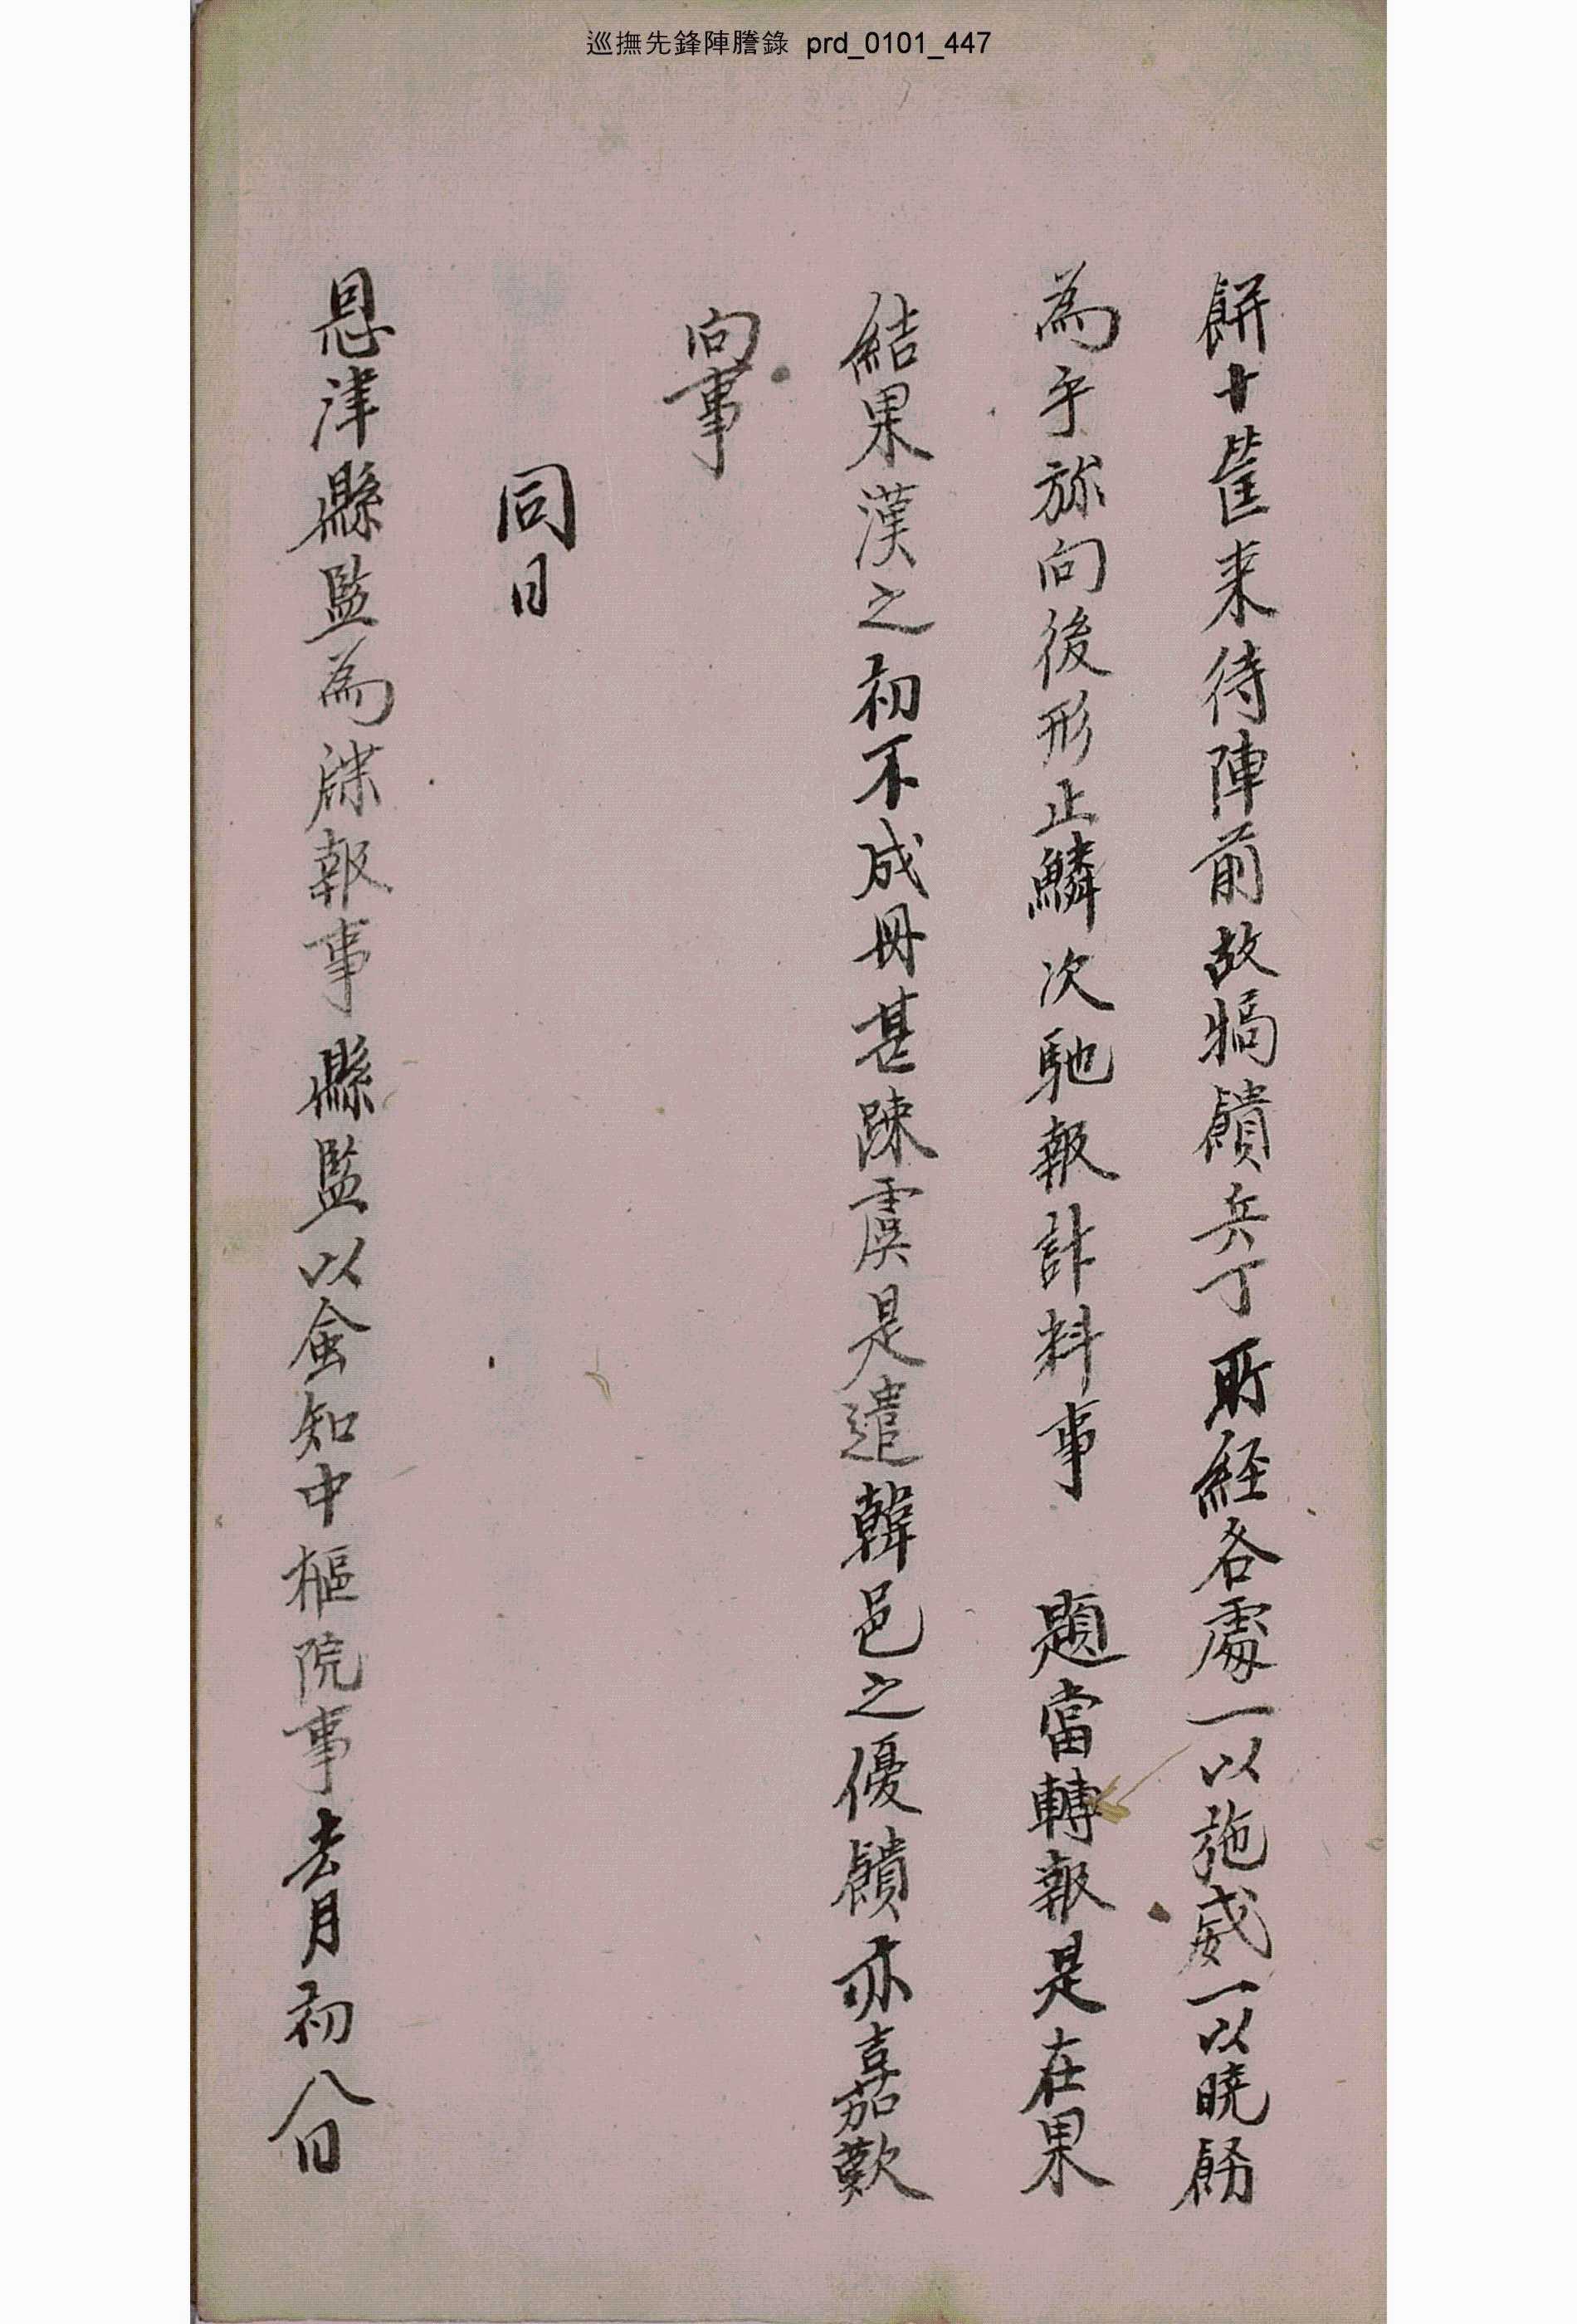 巡撫先鋒陣謄錄 prd_0101_447
餠十筐来待陣前故犒饋兵丁所経各處一以施威一以曉飭
為乎旀向後形止鱗次馳報計料事 題當轉報是在果
結果漢之初不成冊甚踈虞是遣韓邑之優饋亦嘉歎
向事
同日
恩津縣監為牒報事縣監以僉知中樞院事去月初八日